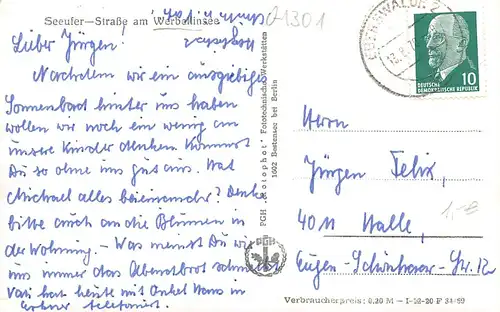 Seeufer—Straße am Werbellinsee
01301
Lieber Jürgen!
Nachdem wir ein ausgiebiges
Sonnenbad hinter uns haben
wollen wir noch ein wenig an
unsere Kinder denken. Kommst
Du so ohne uns gut aus. Hat
Michael alles beieinander? Denke
bitte auch an die Blumen in
der Wohnung. — Was meinst Du wie
uns immer das Abendbrot schmeckt
Vati hat heute mit Onkel Hans in
telefoniert.
PGH „Fotophot" Fototechnische Werkstätten
1602 Bestensee bei Berlin
PGH
EBERSWALDE 2
DEUTSCHE
DEMOKRATISCHE REPUBLIK
10
Herrn
Jürgen Felix,
4011 Halle,
Eugen-Schönhaar-Str. 12
1,-
Verbraucherpreis: 0,20 M – I-12-20 F 34/69